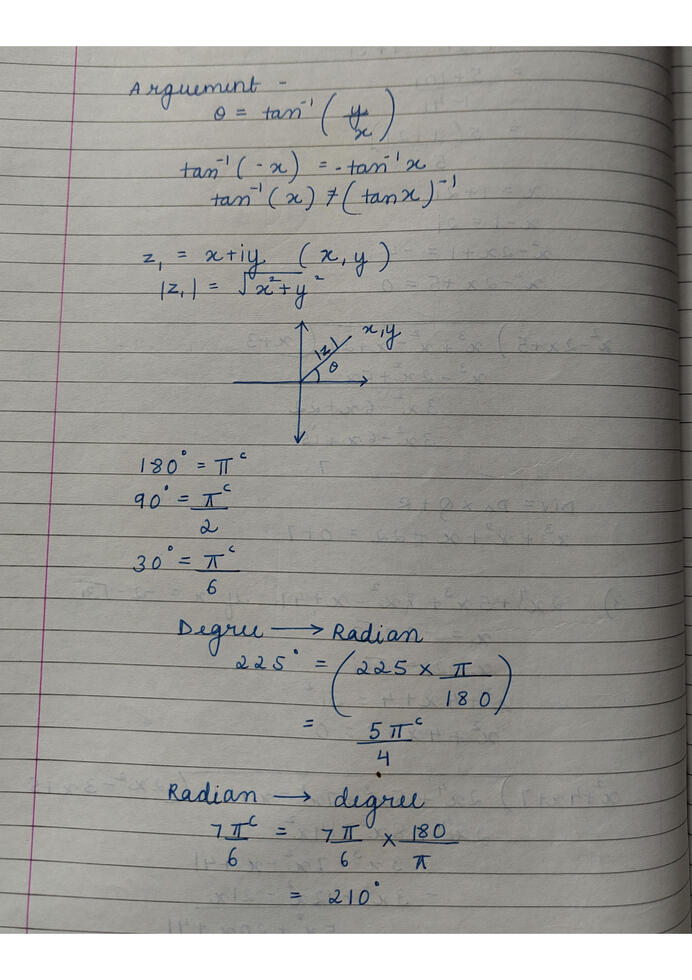 Arguement -
θ = tan⁻¹ (y/x)
tan⁻¹(-x) = -tan⁻¹x
tan⁻¹(x) ≠ (tanx)⁻¹
z₁ = x+iy (x, y)
|z₁| = √x²+y²
x,y
|z|
θ
180° = πᶜ
90° = πᶜ/2
30° = πᶜ/6
Degree ⟶ Radian
225° = (225 × π/180)
= 5πᶜ/4
Radian ⟶ degree
7πᶜ/6 = 7π/6 × 180/π
= 210°